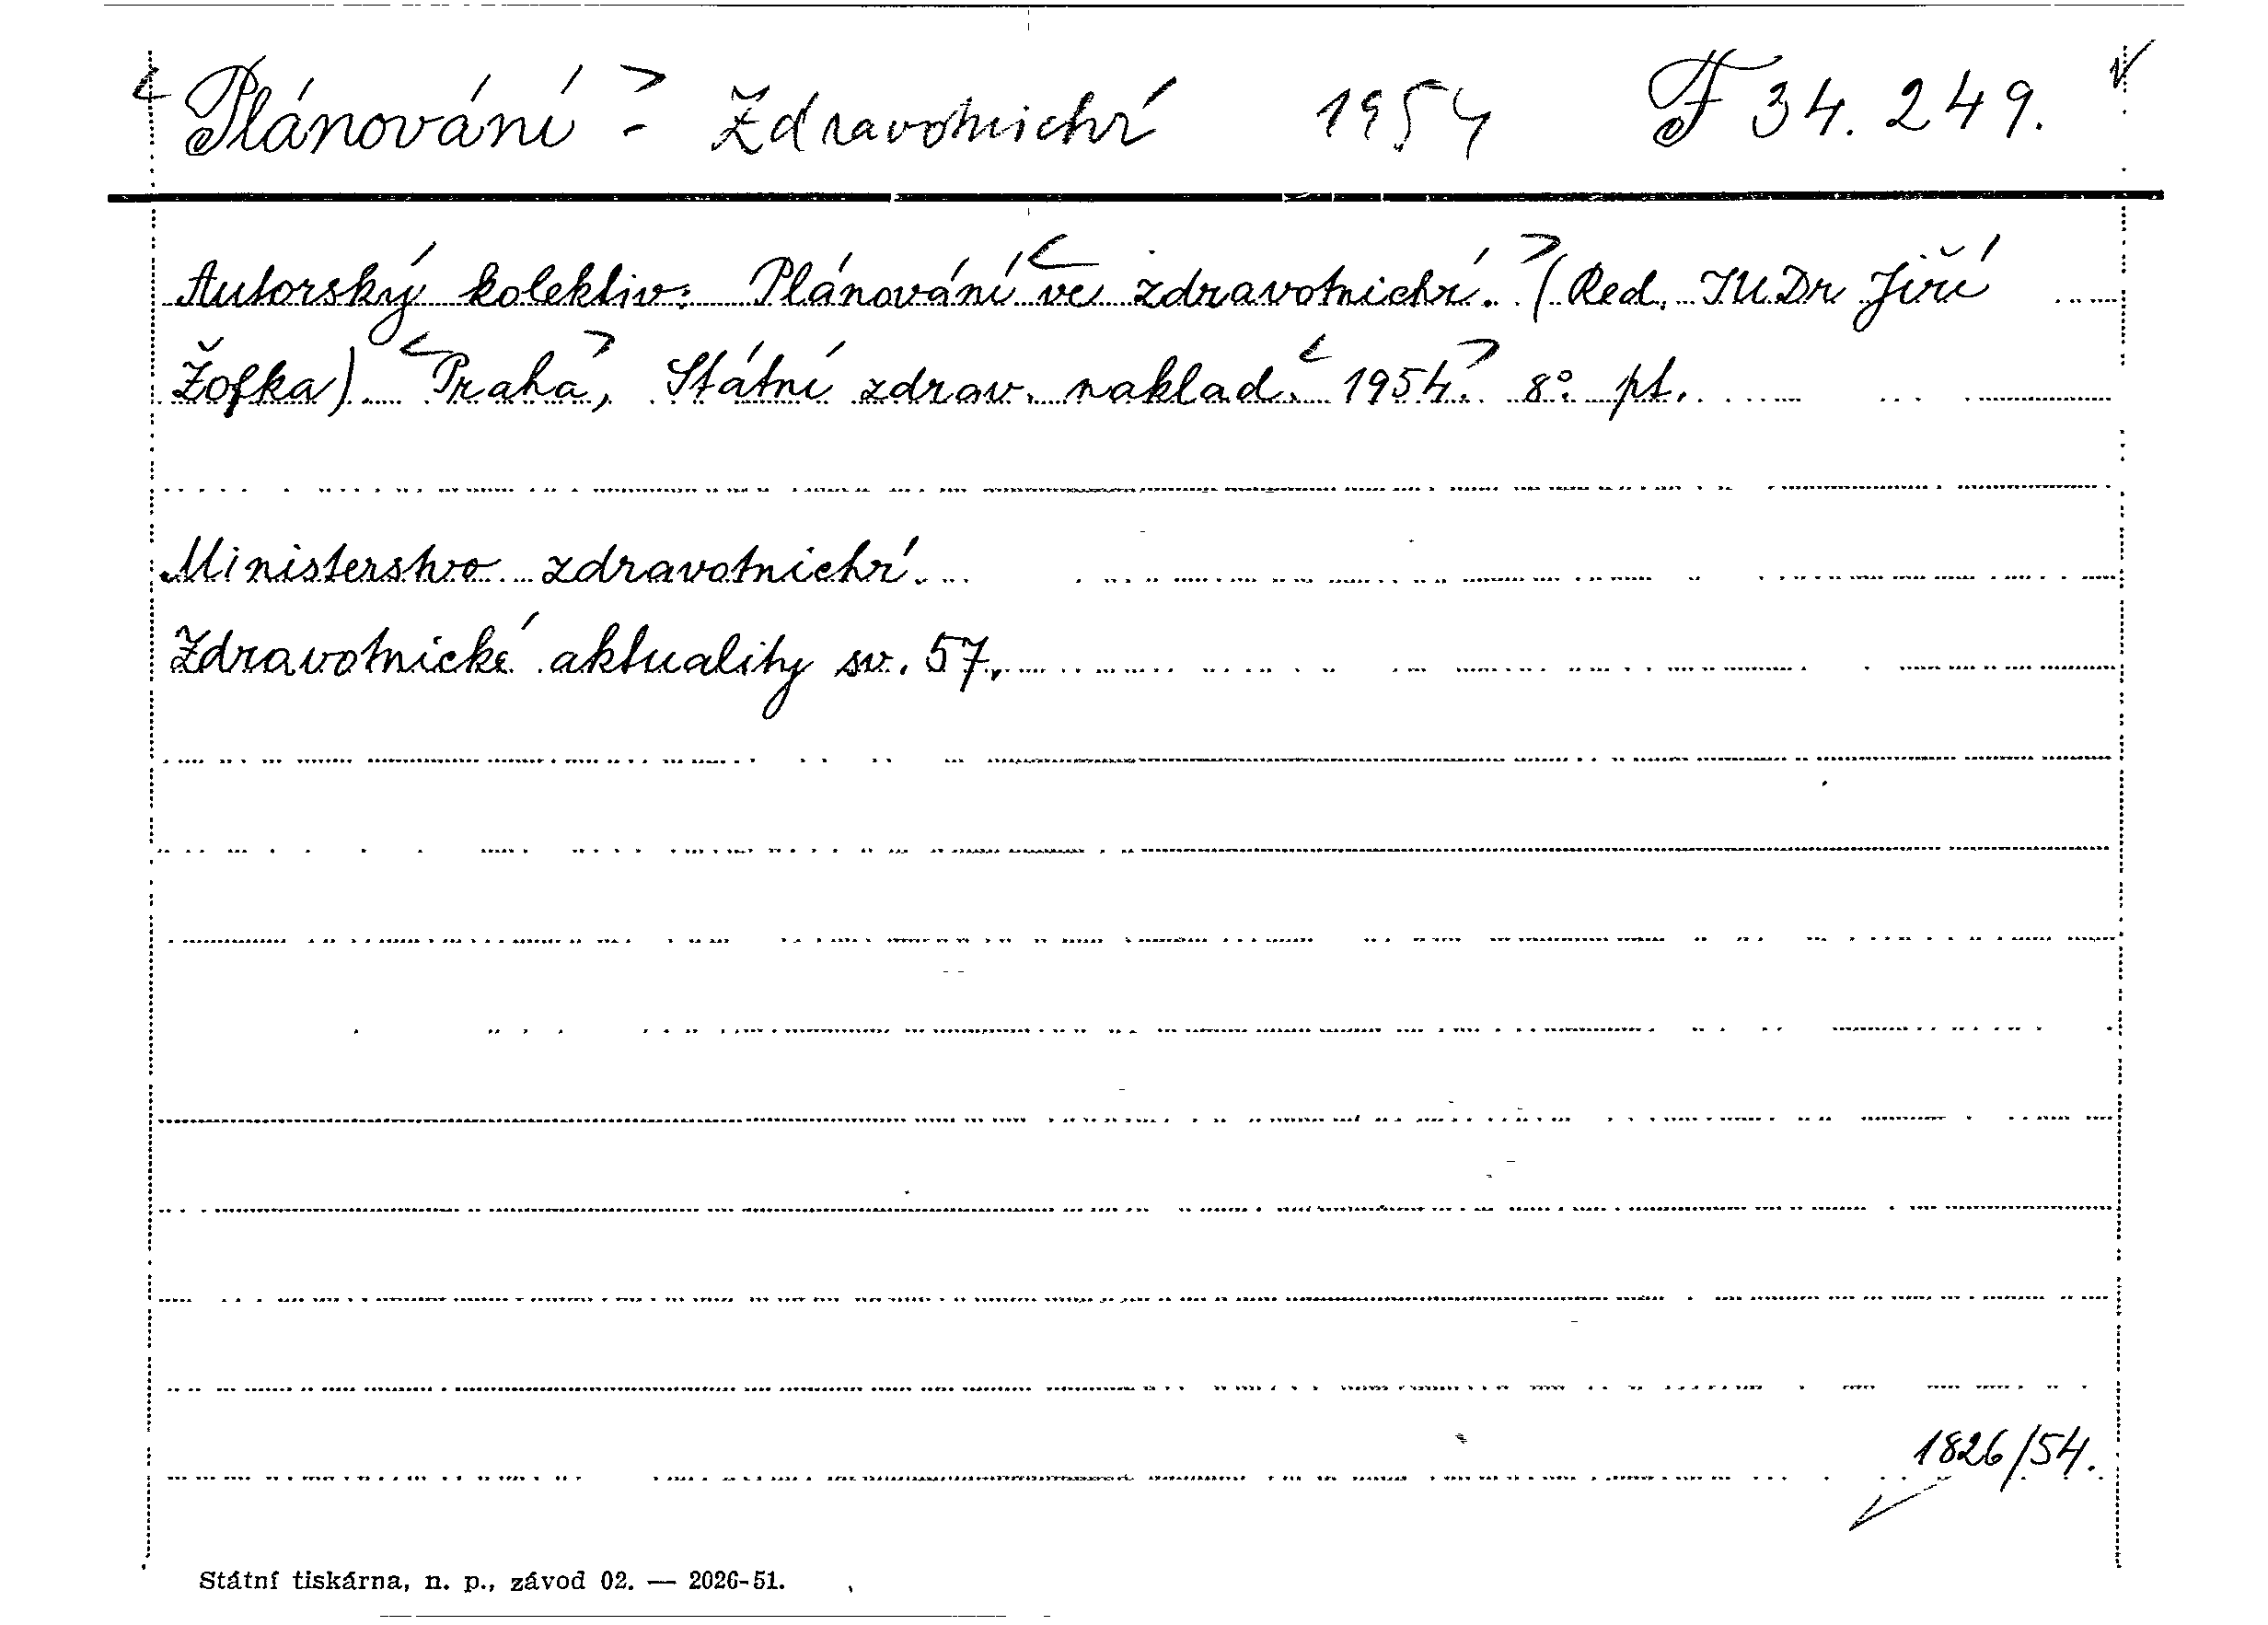 < Plánování > - Zdravotnictví 1954 F 34.249. √
Autorský kolektiv: Plánování < ve zdravotnictví. > (Red. JUDr Jiří
Žofka). < Praha >, Státní zdrav. naklad. < 1954. > 8° pt.
Ministerstvo zdravotnictví.
Zdravotnické aktuality sv. 57.
1826/54.
Státní tiskárna, n. p., závod 02. — 2026-51.